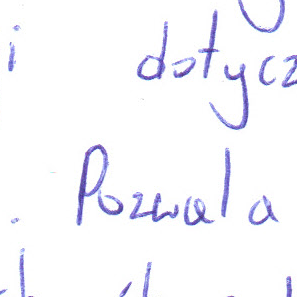 i dotycz
. Pozwala